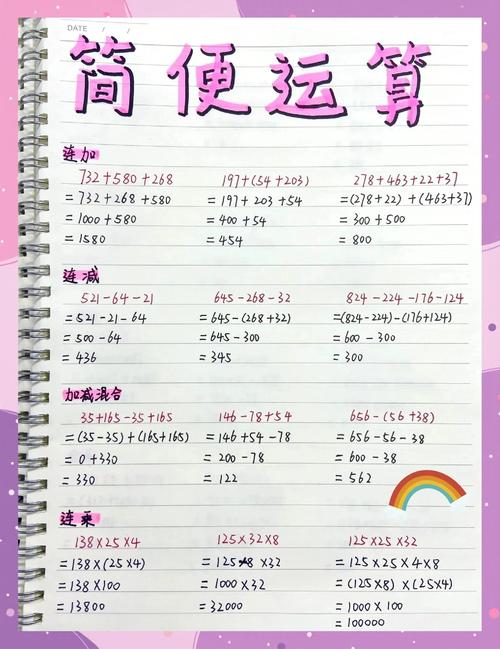 DATE / /
简便运算
连加
732+580+268
=732+268+580
=1000+580
=1580
197+(54+203)
=197+203+54
=400+54
=454
278+463+22+37
=(278+22)+(463+37)
=300+500
=800
连减
521-64-21
=521-21-64
=500-64
=436
645-268-32
=645-(268+32)
=645-300
=345
824-224-176-124
=(824-224)-(176+124)
=600-300
=300
加减混合
35+165-35+165
=(35-35)+(165+165)
=0+330
=330
146-78+54
=146+54-78
=200-78
=122
656-(56+38)
=656-56-38
=600-38
=562
连乘
138×25×4
=138×(25×4)
=138×100
=13800
125×32×8
=125×8×32
=1000×32
=32000
125×25×32
=125×25×4×8
=(125×8)×(25×4)
=1000×100
=100000